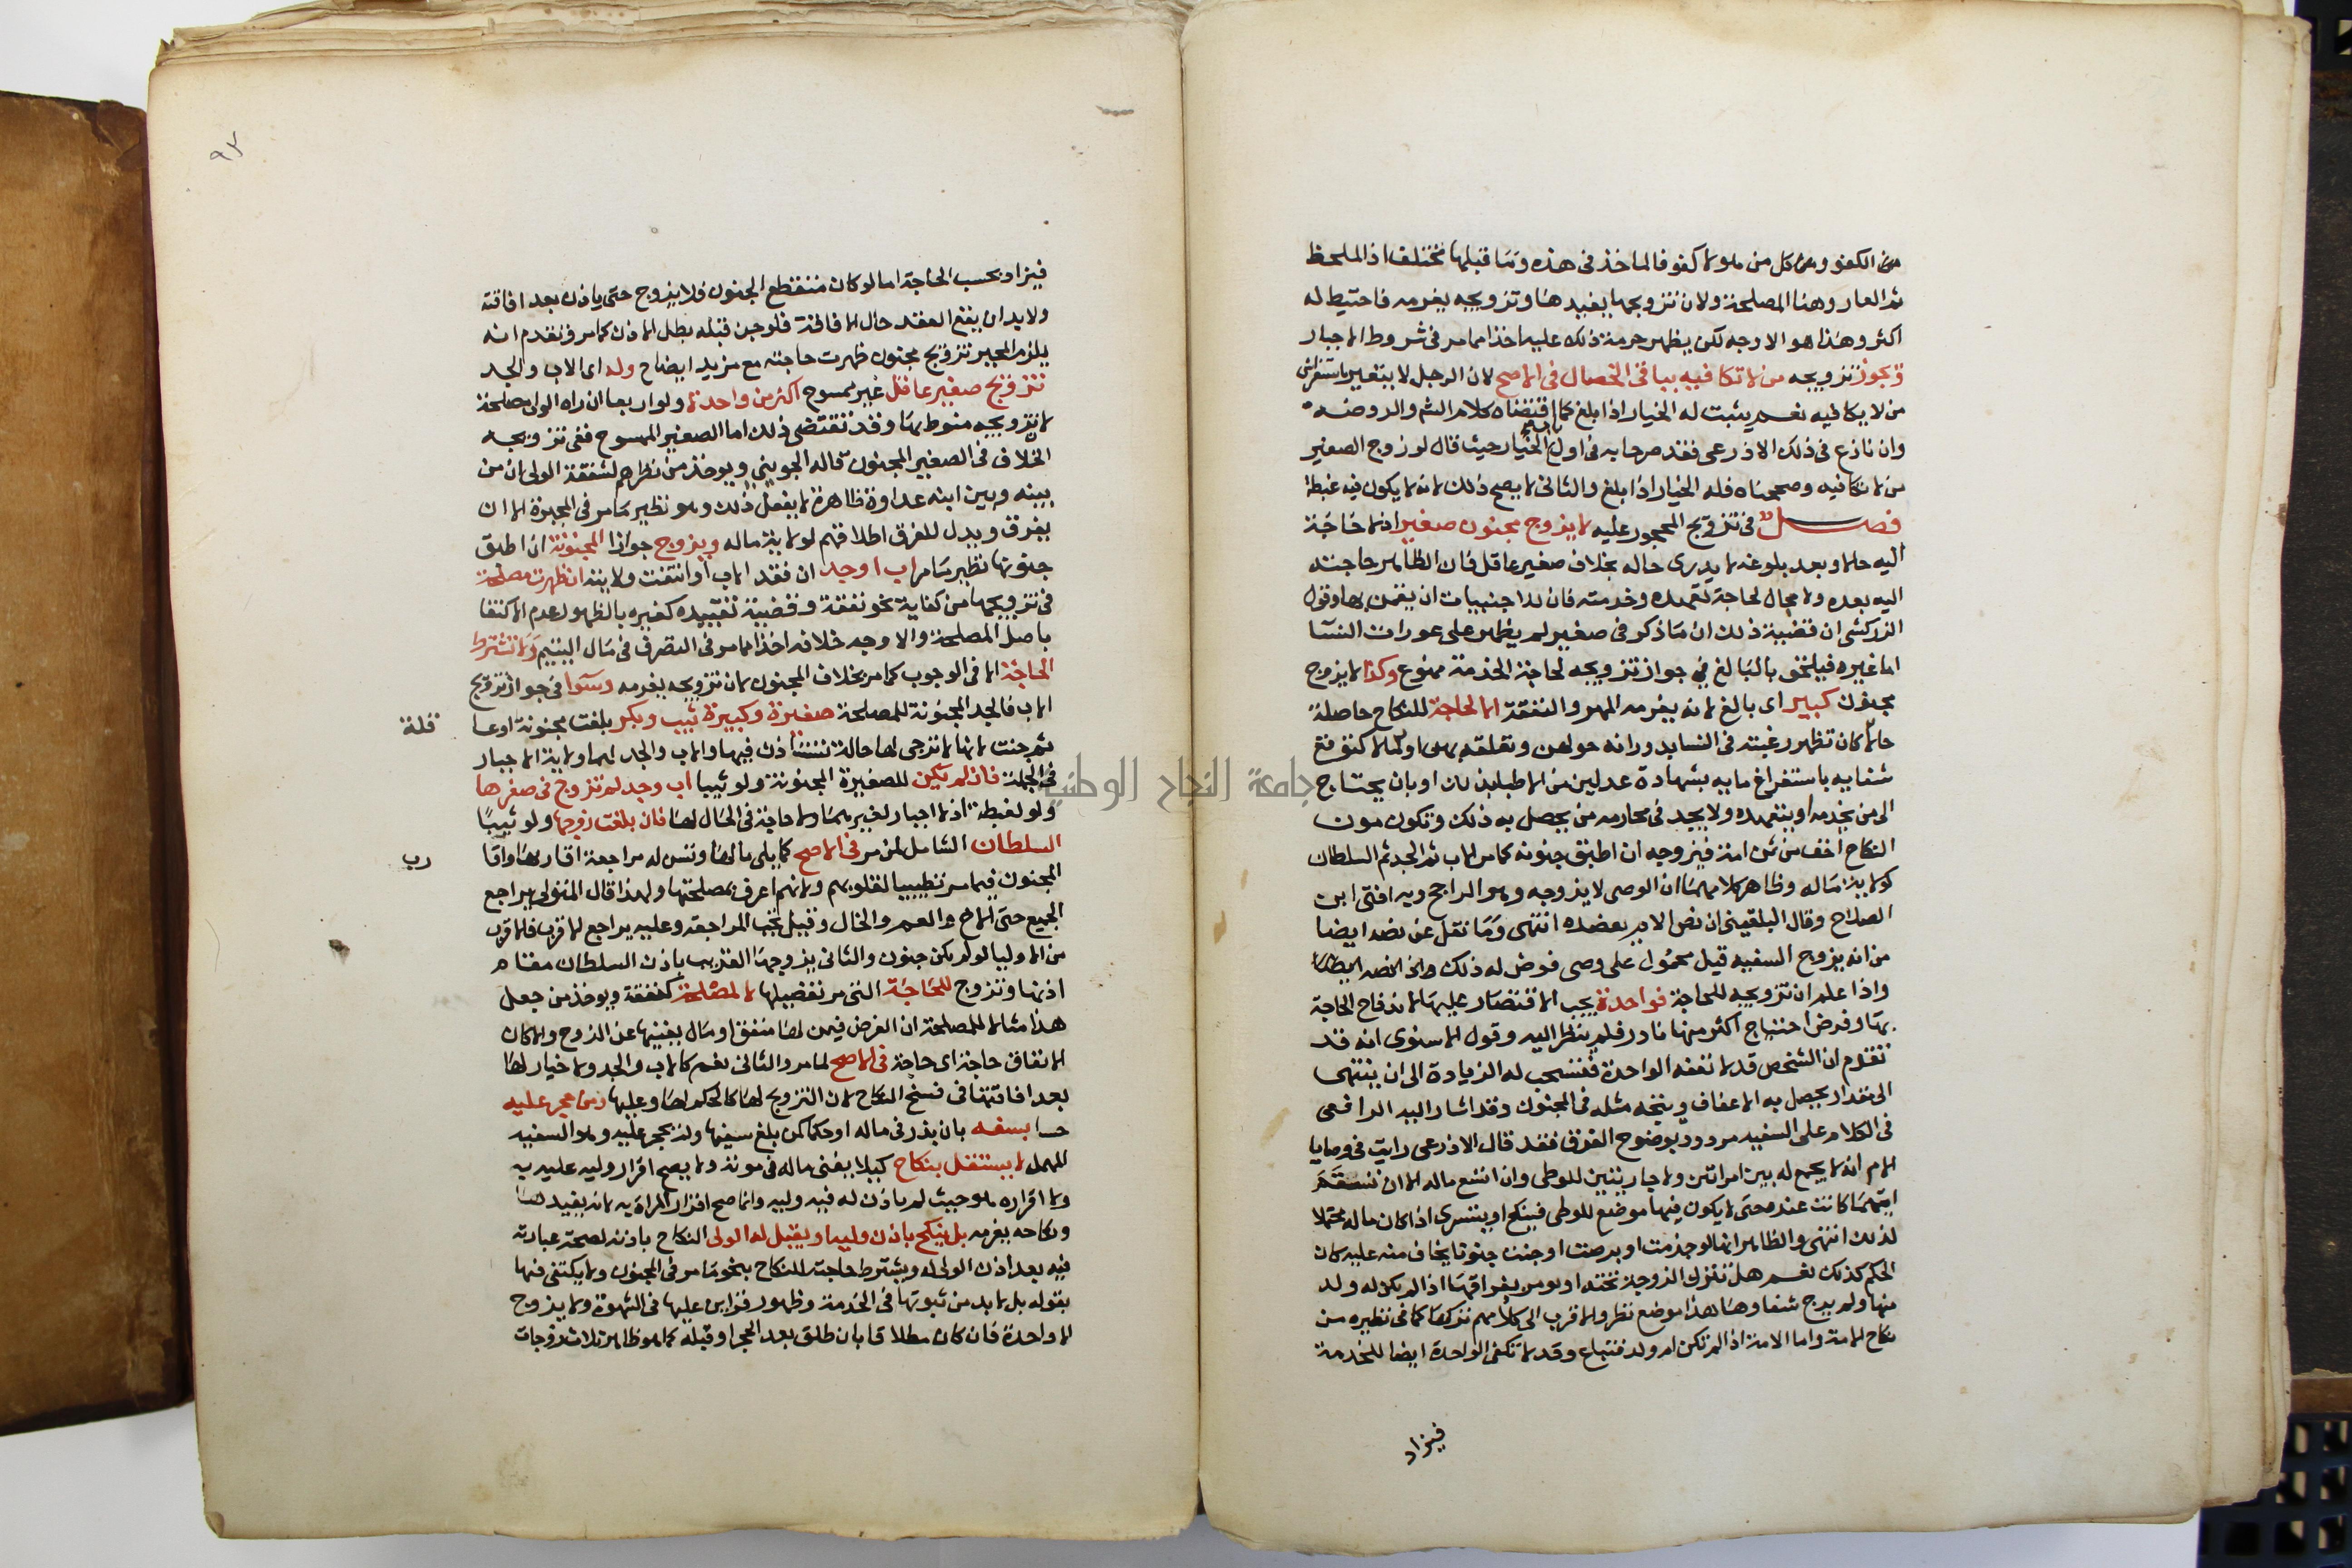 من الكفو ومن كل من هو لا كفو فالماخذ في هذه وما قبلها مختلف اذ الملحظ
ثم العار وهنا المصلحة ولان تزويجها يفيدها وتزويجه يغرمه فاحتيط له
اكثر وهذا هو الاوجه لكن يظهر حرمة ذلك عليه اخذا مما مر في شروط الاجبار
ويجوز تزويجه من لا تكافيه بباقي الخصال في الاصح لان الرجل لا يتعير باستفراش
من لا يكافيه نعم يثبت له الخيار اذا بلغ كما اقتضاه كلام الشم والروضه
وان نازع في ذلك الاذرعي فقد صرحا به في اول الخيار حيث قال لو زوج الصغير
من لا تكافيه وصححناه فله الخيار اذا بلغ والثاني لا يصح ذلك لانه لا يكون فيه غبطة
فصل في تزويج المحجور عليه لا يزوج مجنون صغير اذ لا حاجة
اليه حالا وبعد بلوغه لا يدرى حاله بخلاف صغير عاقل فان الظاهر حاجته
اليه بعده ولا مجال لحاجة تعهده وخدمته فان للاجنبيات ان يقمن بها وقول
الزركشي ان قضية ذلك ان ما ذكر في صغير لم يظهر على عورات النسا
اما غيره فيلحق بالبالغ في جواز تزويجه لحاجة الخدمة ممنوع وكذا لا يزوج
مجنون كبير اي بالغ لانه يغرمه المهر والنفقة الا لحاجة للنكاح حاصلة
حالا كان تظهر رغبته في النسا بدورانه حولهن وتعلقه بهن او مالا كتوقع
شفايه باستفراغ مايه بشهادة عدلين من الاطبا بذلك او بان يحتاج
الى من يخدمه او يتعهده ولا يجد في محارمه من يحصل به ذلك وتكون مون
النكاح اخف من ثمن امة فيزوجه ان اطبق جنونه كما مر الاب ثم الجد ثم السلطان
كولاية ماله وظاهر كلامهما ان الوصي لا يزوجه وهو الراجح وبه افتى ابن
الصلاح وقال البلقيني ان نص الام يعضده انتهى وما نقل عن نصه ايضا
من انه يزوج السفيه قيل محمول على وصي فوض له ذلك
واذا علم ان تزويجه للحاجة فواحدة يجب الاقتصار عليها لاندفاع الحاجة
بها وفرض احتياج اكثر منها نادر فلم ينظر اليه وقول الاسنوي انه قد
تقدم ان الشخص قد لا تعفه الواحدة فتستحب له الزيادة الى ان ينتهى
الى مقدار يحصل به الاعفاف ويتجه مثله في المجنون وقد اشار اليه الرافعي
في الكلام على السفيه مردود بوضوح الفرق فقد قال الاذرعي رايت في وصايا
الام انه لا يجمع له بين امراتين ولا جاريتين للوطى وان اتسع ماله الا ان تسقم
ايتهما كانت عنده حتى لا يكون فيها موضع للوطى فينكح او يتسرى اذا كان ماله محتملا
لذلك انتهى والظاهر انها لو جذمت او برصت او جنت جنونا يخاف منه عليه كان
الحكم كذلك نعم هل تترك الزوجة تحته او يومر بفراقها اذا لم يكن له ولد
منها ولم يرج شفاوها هذا موضع نظر والاقرب الى كلامهم تركها كما في نظيره من
نكاح الامة واما الامة اذا لم تكن ام ولد فتباع وقد لا تكفي الواحدة ايضا للخدمة
فيزاد
٩٣
فيزاد بحسب الحاجة اما لو كان متقطع الجنون فلا يزوج حتى ياذن بعد افاقته
ولا بد ان يقع العقد حال الافاقة فلو جن قبله بطل الاذن كما مر وتقدم انه
يلزم المجبر تزويج مجنون ظهرت حاجته مع مزيد ايضاح وله اي الاب والجد
تزويج صغير عاقل غير ممسوح اكثر من واحدة ولو اربعا ان راه الولي مصلحة
لان تزويجه منوط بها وقد تقتضي ذلك اما الصغير الممسوح ففي تزويجه
الخلاف في الصغير المجنون قاله الجويني ويوخذ من نظرهم لشفقة الولي ان من
بينه وبين ابنه عداوة ظاهرة لا يفعل ذلك وهو نظير ما مر في المجبرة الا ان
يفرق ويدل للفرق اطلاقهم لولاية ماله ويزوج جوازا المجنونة ان اطبق
جنونها نظير ما مر اب او جد ان فقد الاب او انتفت ولايته ان ظهرت مصلحة
في تزويجها من كفاية نحو نفقة وقضية تقييده كغيره بالظهور عدم الاكتفا
باصل المصلحة والاوجه خلافه اخذا مما مر في التصرف في مال اليتيم ولا تشترط
الحاجة الا في الوجوب كما مر بخلاف المجنون لان تزويجه يغرمه وسوا في جواز تزويج
الاب فالجد المجنونة للمصلحة صغيرة وكبيرة ثيب وبكر بلغت مجنونة او عا
قلة
ثم جنت لانها لا ترجى لها حالة تستاذن فيها والاب والجد لهما ولاية الاجبار
في الجملة فان لم يكن للصغيرة المجنونة ولو ثيبا اب وجد لم تزوج في صغرها
ولو لغبطة اذ لا اجبار لغيرهما ولا حاجة في الحال لها فان بلغت زوجها ولو ثيبا
السلطان الشامل لمن مر في الاصح كما يلي مالها وتسن له مراجعة اقاربها واقا
رب
المجنون فيما مر تطييبا لقلوبهم ولانهم اعرف بمصلحتها ولهذا قال المتولي يراجع
الجميع حتى الاخ والعم والخال وقيل تجب المراجعة وعليه يراجع الاقرب فالاقرب
من الاوليا لو لم يكن جنون والثاني يزوجها القريب باذن السلطان مقام
اذنها وتزوج للحاجة التي مر تفصيلها لا لمصلحة كنفقة ويوخذ من جعل
هذا مثالا للمصلحة ان الفرض فيمن لها منفق او مال يغنيها عن الزوج والا كان
الانفاق حاجة اي حاجة في الاصح لما مر والثاني نعم كالاب والجد ولا خيار لها
بعد افاقتها في فسخ النكاح لان التزويج لها كالحكم لها وعليها ومن حجر عليه
حسا بسفه بان بذر في ماله او حكما كمن بلغ سفيها ولم يحجر عليه وهو السفيه
المهمل لا يستقل بنكاح كيلا يفنى ماله في مونه ولا يصح اقرار وليه عليه به
ولا اقراره هو حيث لم ياذن له فيه وليه وانما صح اقرار المراة به لانه يفيدها
ونكاحه يغرمه بل ينكح باذن وليه او يقبل له الولي النكاح باذنه لصحة عبارته
فيه بعد اذن الولي له ويشترط حاجته للنكاح بنحو ما مر في المجنون ولا يكتفى فيها
بقوله بل لا بد من ثبوتها في الخدمة وظهور قراين عليها في الشهوة ولا يزوج
الا واحدة فان كان مطلاقا بان طلق بعد الحجر او قبله كما هو ظاهر ثلاث زوجات
جامعة النجاح الوطنية